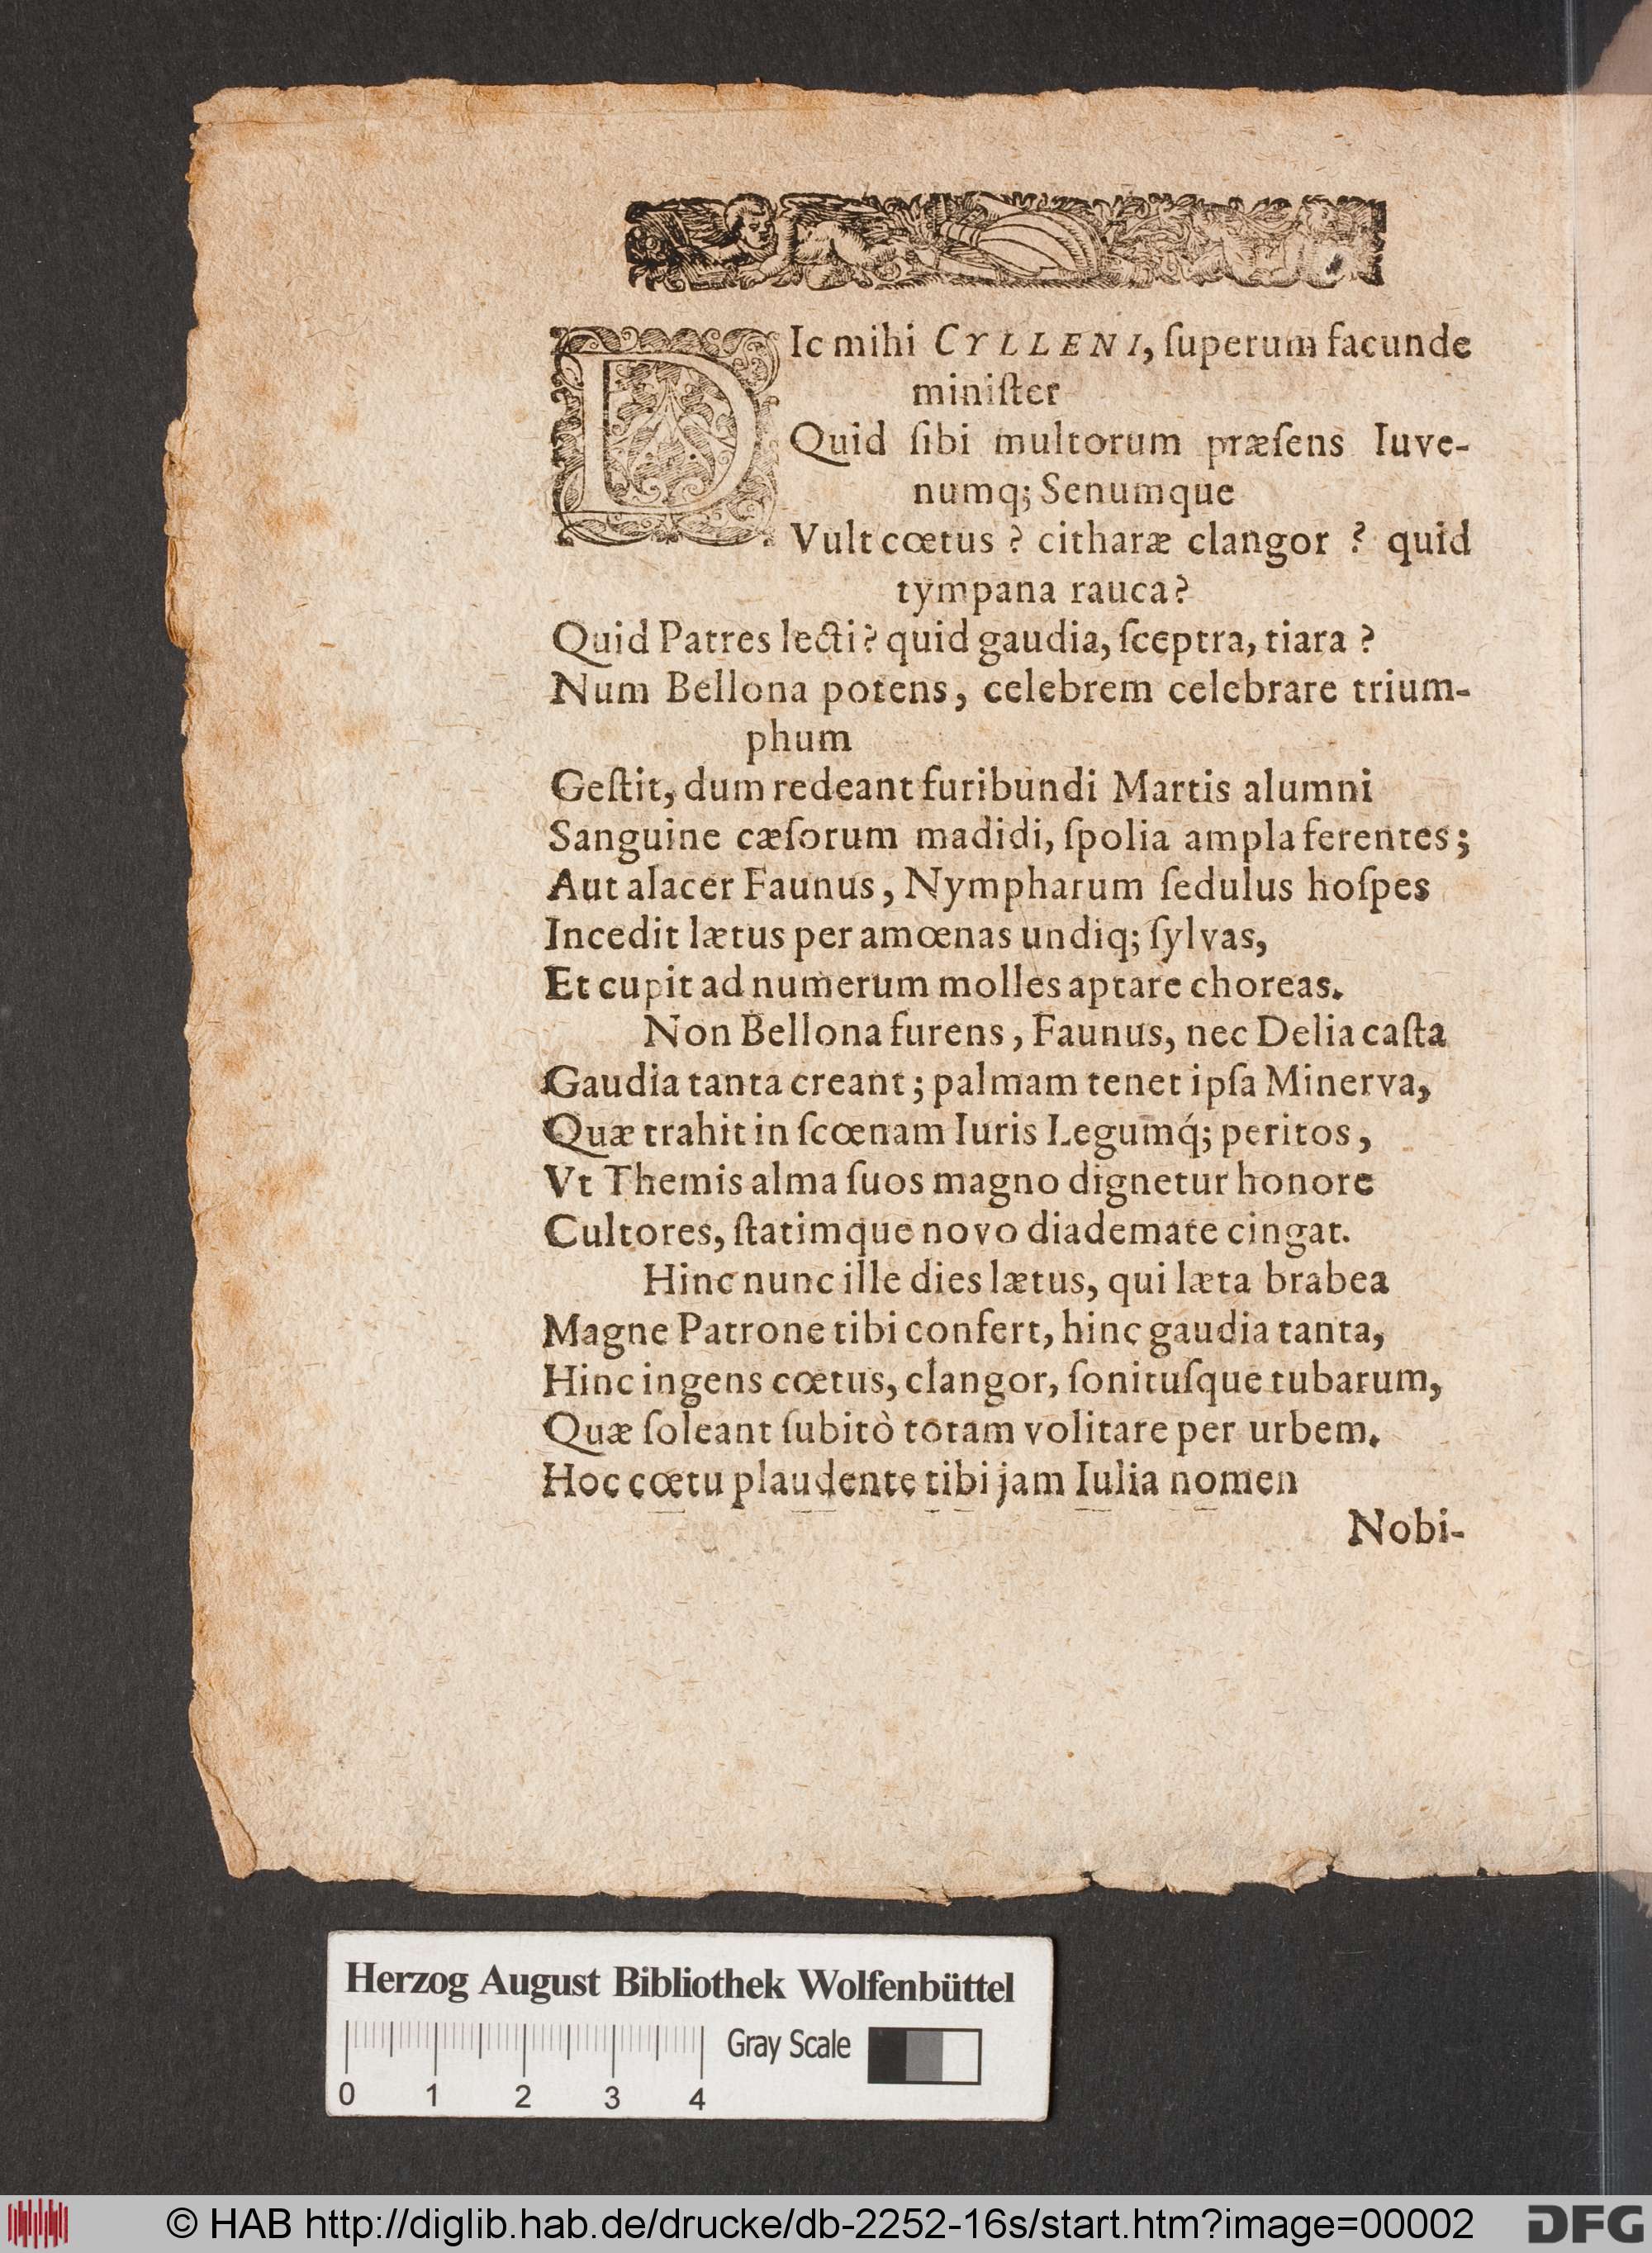 DIc mihi CYLLENI, ſuperum facunde
miniſter
Quid ſibi multorum præſens Iuve-
numq; Senumque
Vult cœtus ? citharæ clangor ? quid
tympana rauca?
Quid Patres lecti? quid gaudia, ſceptra, tiara ?
Num Bellona potens, celebrem celebrare trium-
phum
Geſtit, dum redeant furibundi Martis alumni
Sanguine cæſorum madidi, ſpolia ampla ferentes;
Aut alacer Faunus, Nympharum ſedulus hoſpes
Incedit lætus per amœnas undiq; ſylvas,
Et cupit ad numerum molles aptare choreas.
Non Bellona furens, Faunus, nec Delia caſta
Gaudia tanta creant; palmam tenet ipſa Minerva,
Quæ trahit in ſcœnam Iuris Legumq́; peritos,
Vt Themis alma ſuos magno dignetur honore
Cultores, ſtatimque novo diademate cingat.
Hinc nunc ille dies lætus, qui læta brabea
Magne Patrone tibi confert, hinc gaudia tanta,
Hinc ingens cœtus, clangor, ſonituſque tubarum,
Quæ ſoleant ſubitò totam volitare per urbem.
Hoc cœtu plaudente tibi jam Iulia nomen
Nobi-
Herzog August Bibliothek Wolfenbüttel
Gray Scale
0 1 2 3 4
© HAB http://diglib.hab.de/drucke/db-2252-16s/start.htm?image=00002
DFG